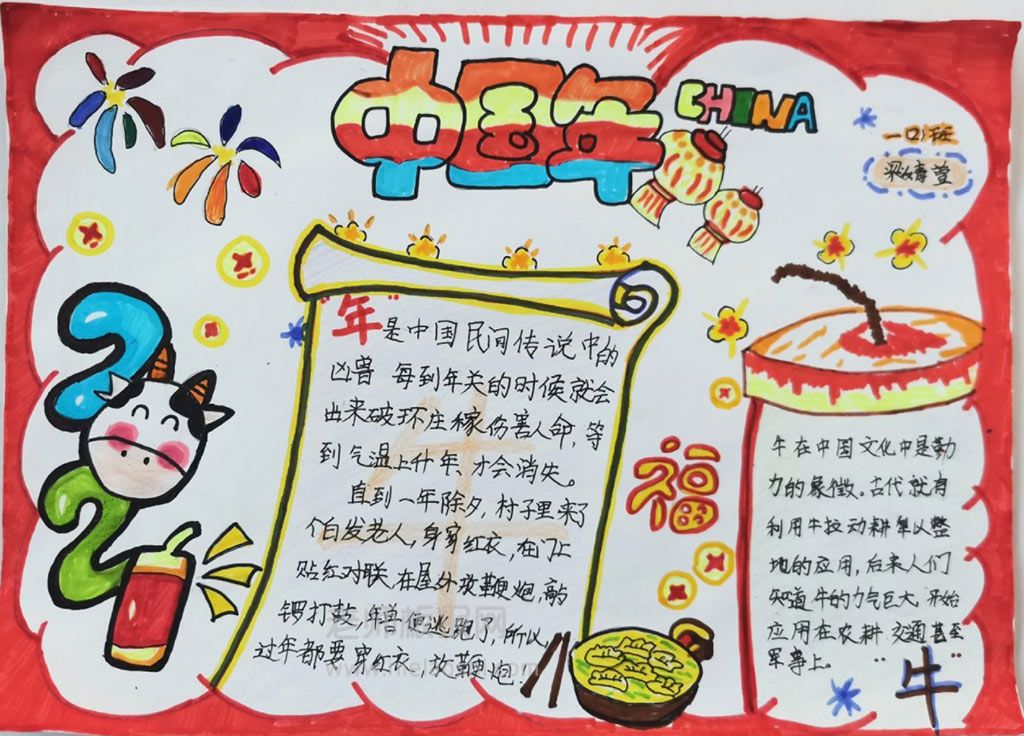 中国年
CHINA
一(2)班
"年"是中国民间传说中的
凶兽 每到年关的时候就会
出来破环庄稼伤害人命,等
到气温上升年、才会消失。
直到一年除夕,村子里来了
个白发老人,身穿红衣,在门上
贴红对联,在屋外放鞭炮,敲
锣打鼓 年兽便逃跑了,所以
过年都要穿红衣,放鞭炮.
福
牛在中国文化中是勤
力的象徵。古代就有
利用牛拉动耕犁以整
地的应用,后来人们
知道牛的力气巨大,开始
应用在农耕 交通甚至
军事上。
"牛"
牛
202